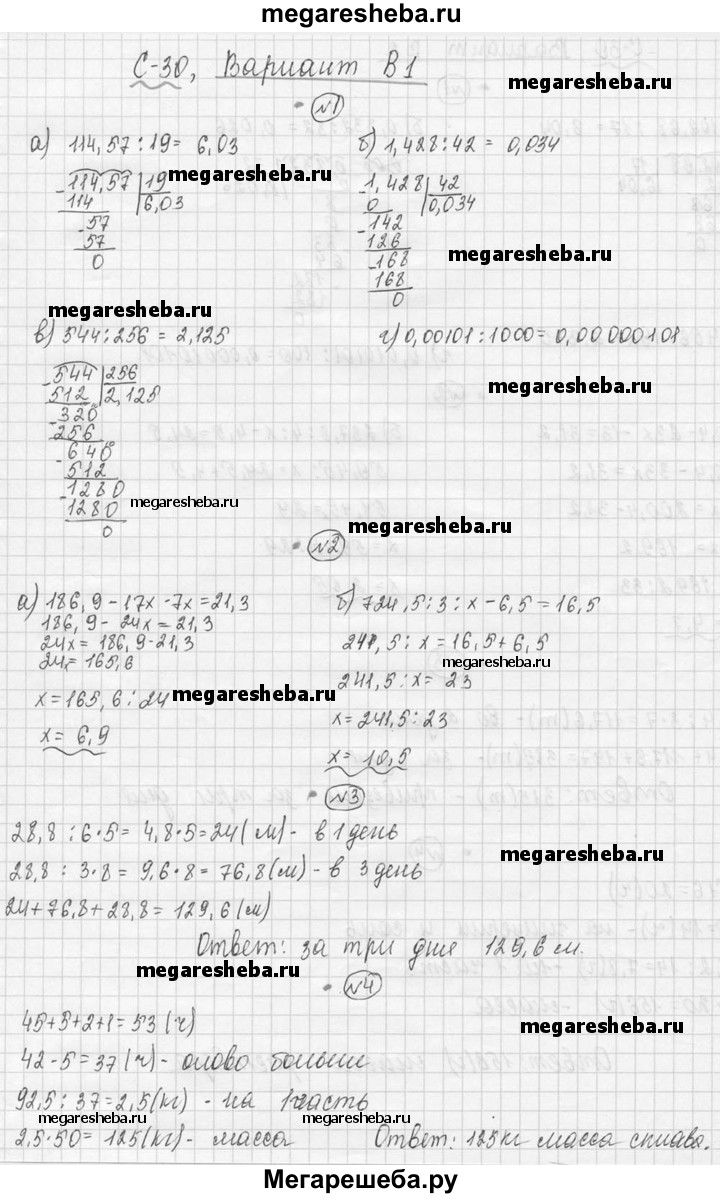 megaresheba.ru
С-30, Вариант В1
megaresheba.ru
№1
а) 114,57 : 19 = 6,03
114,57 19
114 6,03
57
57
0
megaresheba.ru
б) 1,428 : 42 = 0,034
1,428 42
0 0,034
142
126
168
168
0
megaresheba.ru
megaresheba.ru
в) 544 : 256 = 2,125
544 256
512 2,125
320
256
640
512
1280
1280
0
megaresheba.ru
г) 0,00101 : 1000 = 0,00 000101
megaresheba.ru
№2
megaresheba.ru
а) 186,9 - 17x - 7x = 21,3
186,9 - 24x = 21,3
24x = 186,9-21,3
24x = 165,6
x = 165,6 : 24
x = 6,9
megaresheba.ru
б) 724,5 : 3 : x - 6,5 = 16,5
241,5 : x = 16,5 + 6,5
megaresheba.ru
241,5 : x = 23
x = 241,5 : 23
x = 10,5
№3
28,8 : 6 · 5 = 4,8 · 5 = 24 (м) - в 1 день
megaresheba.ru
28,8 : 3 · 8 = 9,6 · 8 = 76,8 (м) - в 3 день
24 + 76,8 + 28,8 = 129,6 (м)
Ответ: за три дня 129,6 м.
megaresheba.ru
№4
45+5+2+1 = 53 (ч)
megaresheba.ru
42 - 5 = 37 (ч) - олово больше
92,5 : 37 = 2,5 (кг) - на 1 часть
megaresheba.ru megaresheba.ru
2,5 · 50 = 125 (кг) - масса Ответ: 125 кг масса сплава.
Мегарешеба.ру